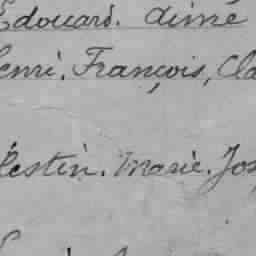 Edouard. Aimé
enri. François, Cla
lestin. Marie. Jos